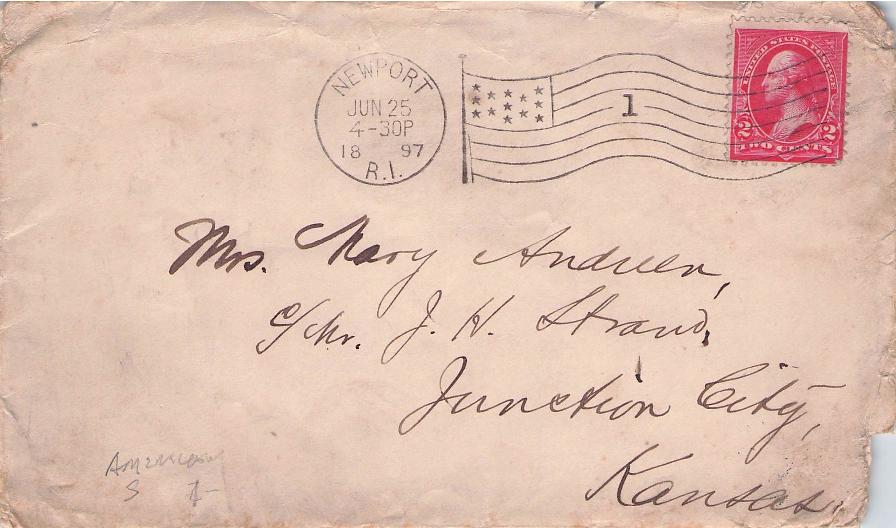 NEWPORT
JUN 25
4-30P
18 97
R.I.
1
UNITED STATES POSTAGE
2 2
TWO CENTS
Mrs. Mary Andreen,
c/Mr. J. H. Strand,
Junction City,
Kansas.
American
S 7-